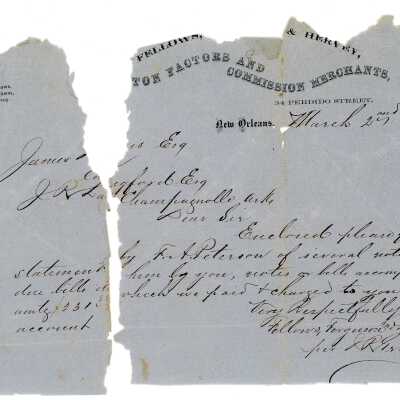 FELLOWS, & HERVEY,
TON FACTORS AND
COMMISSION MERCHANTS,
34 PERDIDO STREET,
New Orleans. March 2nd
James is Esq
J R La gford Esq
Champagnolle Arks
Dear Sir
Enclosed please
statement by F. A. Peterson of several not
due bills him by you, notes & bills accomp
amtg $231 which we paid & charged to your
account Very Respectfully
Fellows, Ferguson &
per J R